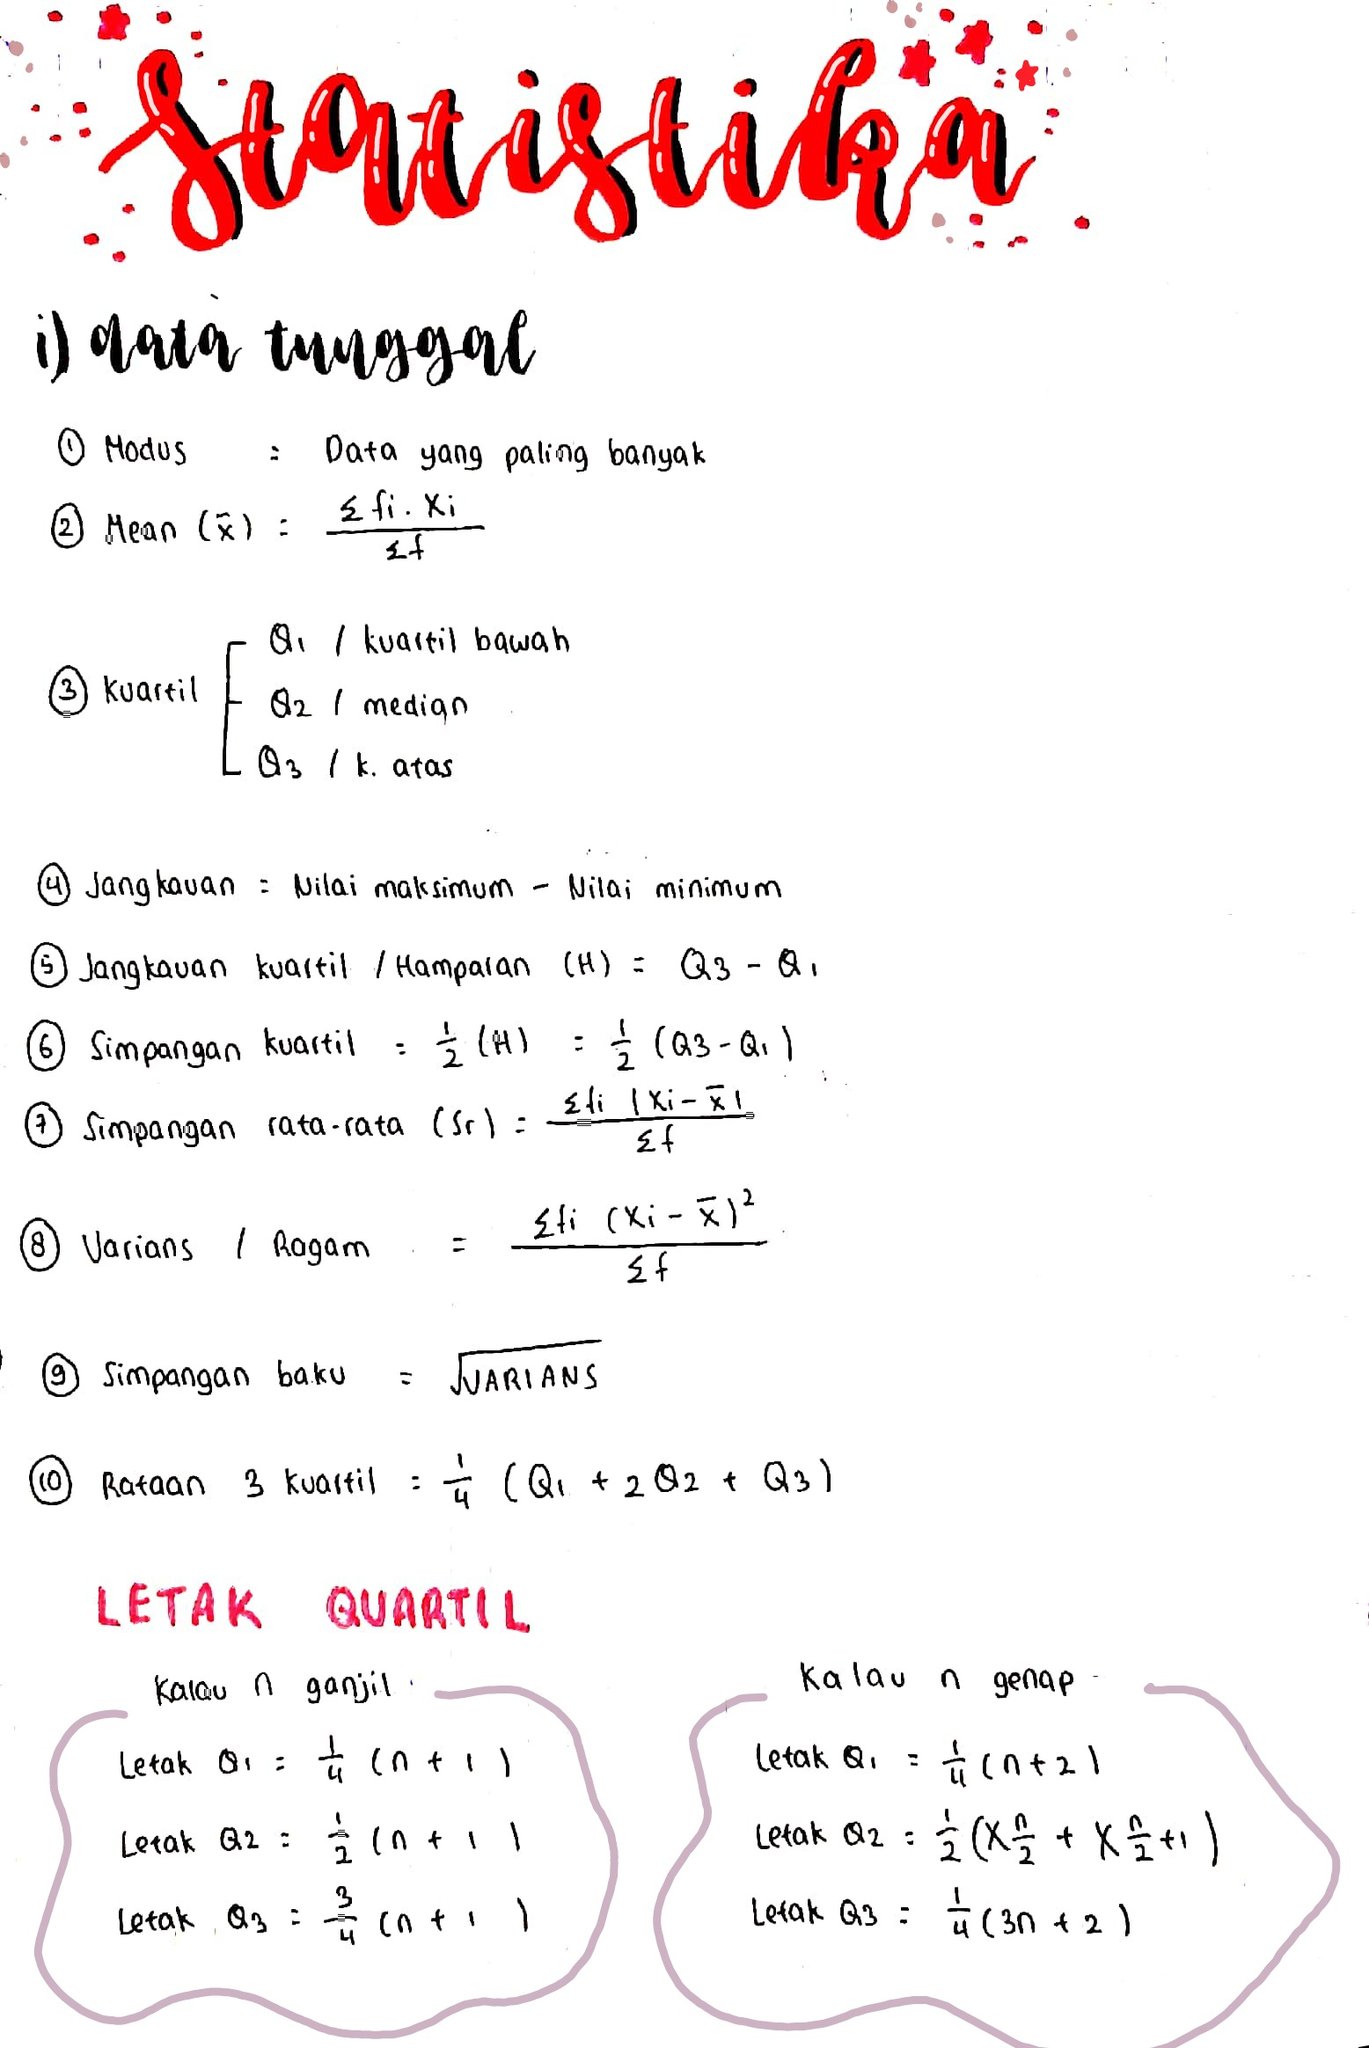 Statistika
i) data tunggal
① Modus : Data yang paling banyak
② Mean (x̄) = Σ fi . Xi / Σf
③ Kuartil
Q1 / kuartil bawah
Q2 / median
Q3 / k. atas
④ Jangkauan = Nilai maksimum - Nilai minimum
⑤ Jangkauan kuartil / Hamparan (H) = Q3 - Q1
⑥ Simpangan kuartil = 1/2 (H) = 1/2 (Q3 - Q1)
⑦ Simpangan rata-rata (Sr) = Σfi |Xi - x̄| / Σf
⑧ Varians / Ragam = Σfi (Xi - x̄)² / Σf
⑨ Simpangan baku = √VARIANS
⑩ Rataan 3 kuartil = 1/4 (Q1 + 2Q2 + Q3)
LETAK QUARTIL
Kalau n ganjil
Letak Q1 = 1/4 (n + 1)
Letak Q2 = 1/2 (n + 1)
Letak Q3 = 3/4 (n + 1)
Kalau n genap
Letak Q1 = 1/4 (n+2)
Letak Q2 = 1/2 (X n/2 + X n/2 +1)
Letak Q3 = 1/4 (3n + 2)